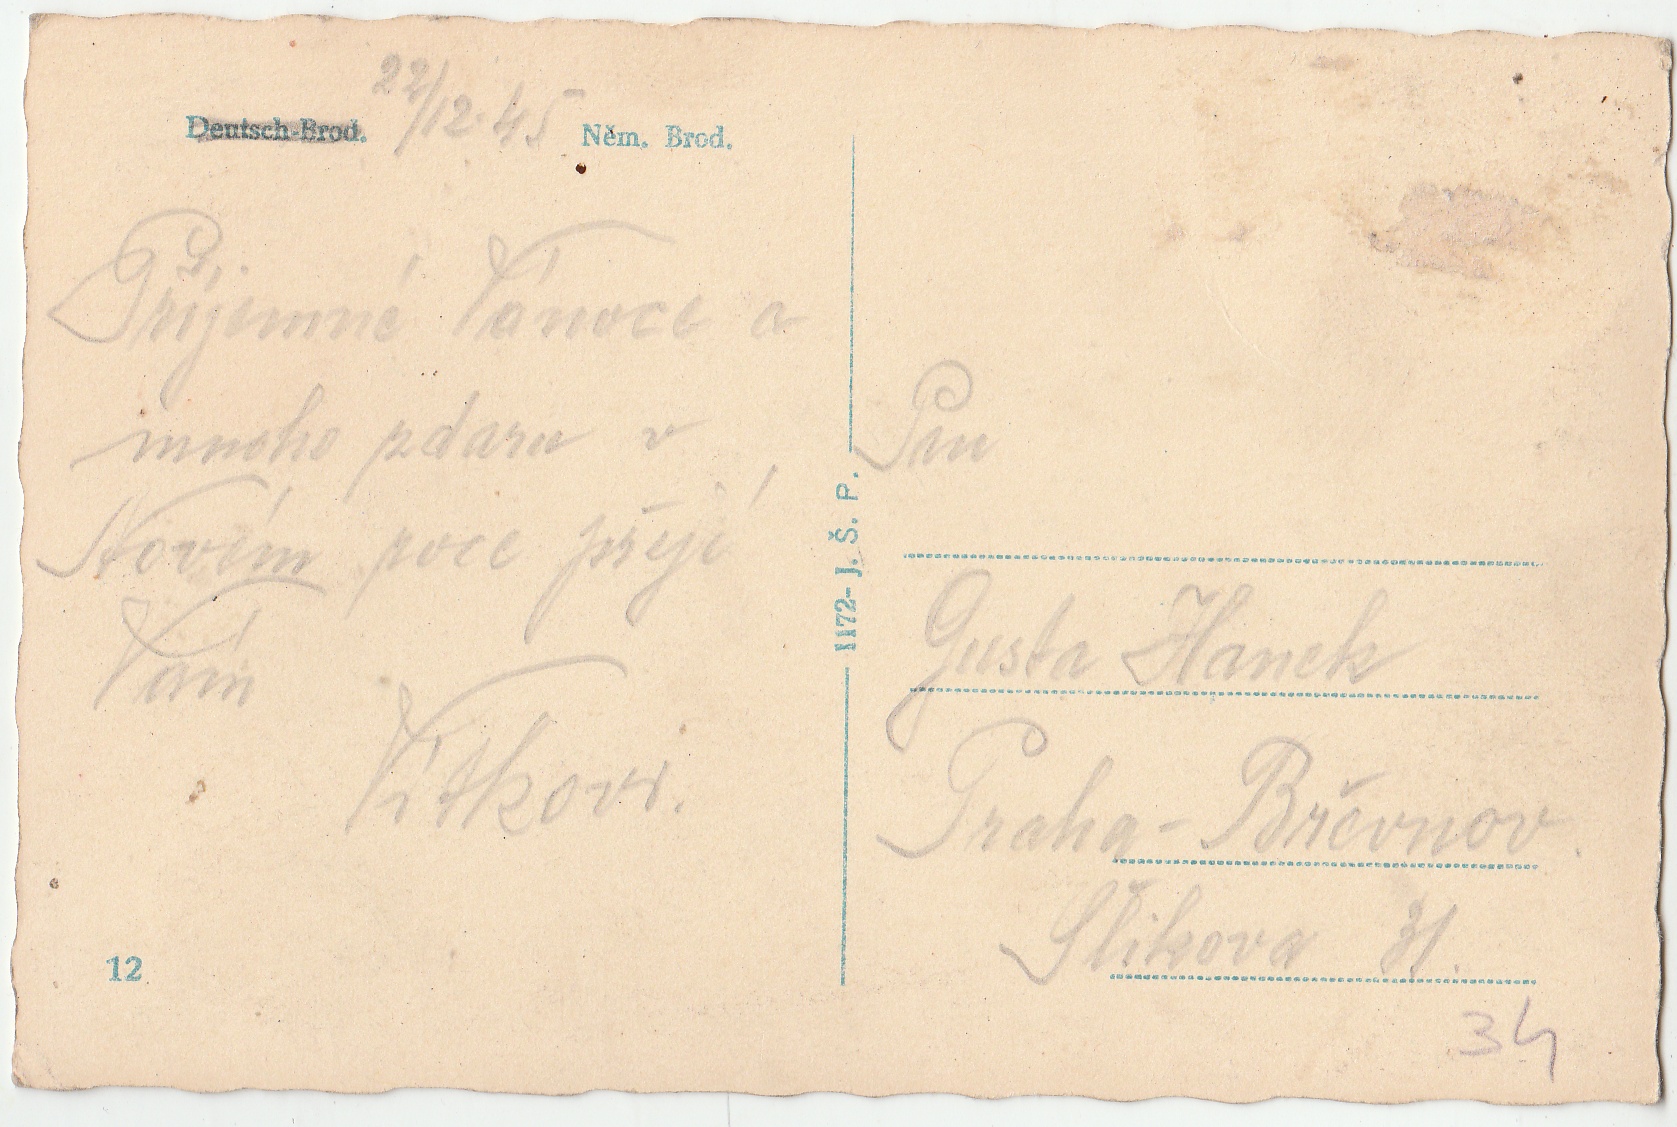 Deutsch-Brod. 22/12.45 Něm. Brod.
Příjemné Vánoce a
mnoho zdaru v
Novém roce přejí
Vám
Vítkovi.
12
1172- J. Š. P.
Pan
Gusta Hanek
Praha - Břevnov.
Šlikova 31.
34